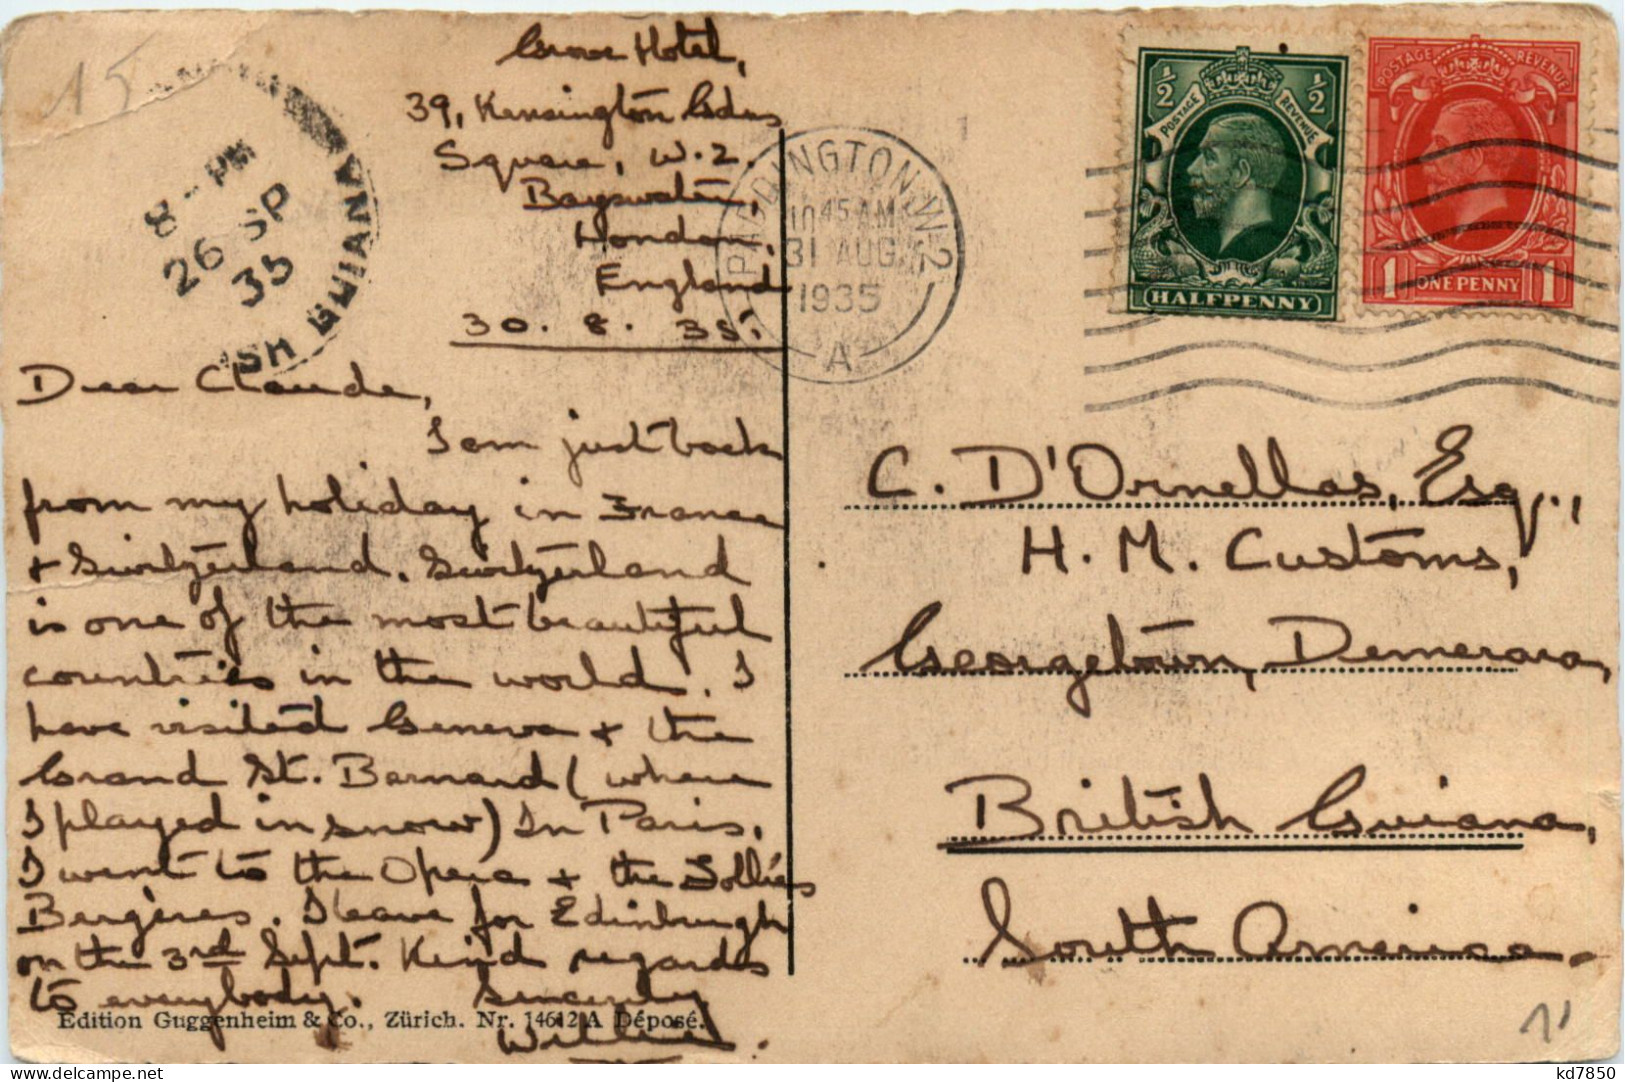 15
Grove Hotel,
39, Kensington Gdns
Square, W.2.
Bayswater,
London,
England
30. 8. 35.
8 - PM
26 SP
35
SH GUIANA
PADDINGTON. W.2
10 45 AM
31 AUG
1935
A
½ ½
POSTAGE REVENUE
HALFPENNY
POSTAGE REVENUE
1 ONE PENNY 1
Dear Claude,
I am just back
from my holiday in France
& Switzerland. Switzerland
is one of the most beautiful
countries in the world. I
have visited Geneva & the
Grand St. Bernard (where
I played in snow) In Paris,
I went to the Opera & the Follies
Bergères. I leave for Edinburgh
on the 3rd Sept. Kind regards
to everybody. Sincerely
Willie.
C. D'Ornellas, Esq.,
H. M. Customs,
Georgetown, Demerara,
British Guiana,
South America.
Edition Guggenheim & Co., Zürich. Nr. 14612 A Déposé.
kd7850